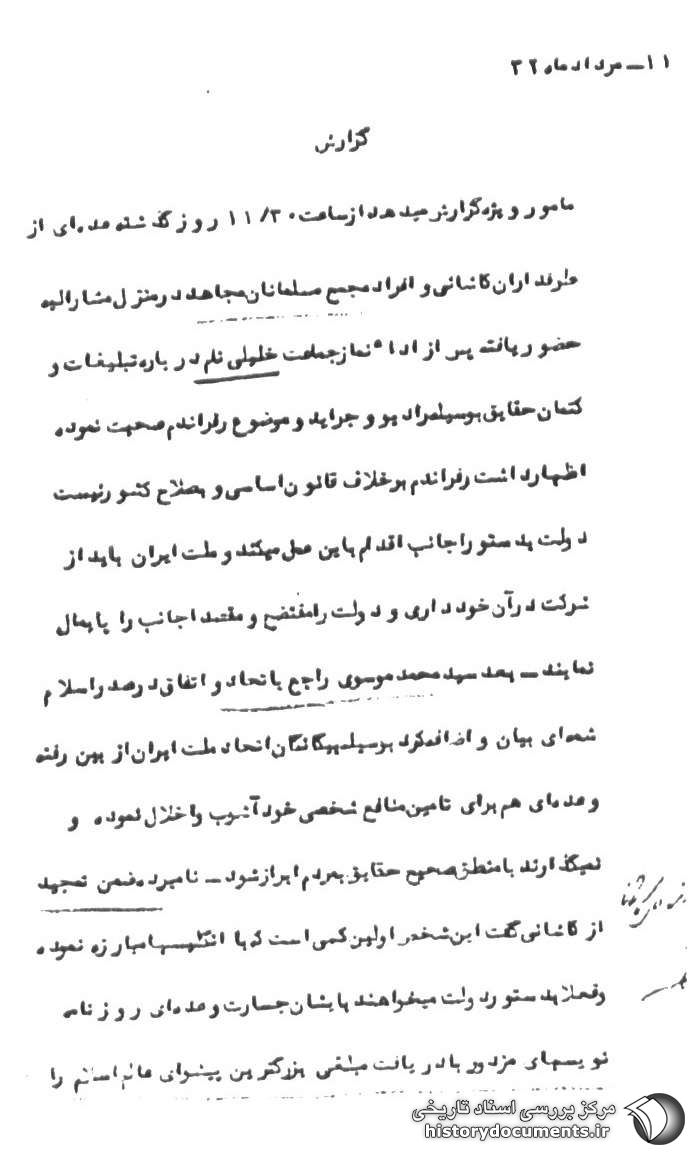 ۱۱ـ مرداد ماه ۳۲
گزارش
مامور ویژه گزارش میدهد از ساعت ۱۱/۳۰ روز گذشته عده‌ای از
طرفداران کاشانی و افراد مجمع مسلمانان مجاهد در منزل مشارالیه
حضور یافته پس از اداء نماز جماعت خلیلی نام در باره تبلیغات و
کتمان حقایق بوسیله رادیو و جراید و موضوع رفراندم صحبت نموده
اظهار داشت رفراندم برخلاف قانون اساسی و بصلاح کشور نیست
دولت بدستور اجانب اقدام باین عمل میکند و ملت ایران باید از
شرکت در آن خودداری و دولت را مفتضح و مقصد اجانب را پایمال
نمایند ـ بعد سید محمد موسوی راجع باتحاد و اتفاق در صدر اسلام
شمه‌ای بیان و اضافه کرد بوسیله بیگانگان اتحاد ملت ایران از بین رفته
و عده‌ای هم برای تامین منافع شخصی خود آشوب و اخلال نموده و
نمیگذارند با منطق صحیح حقایق بمردم ابراز شود ـ نامبرده ضمن تمجید
از کاشانی گفت این شخص اولین کسی است که با انگلیسها مبارزه نموده
و فعلا بدستور دولت میخواهند بایشان جسارت و عده‌ای روزنامه
نویسهای مزدور با دریافت مبلغی بزرگترین پیشوای عالم اسلام را
مرکز بررسی اسناد تاریخی
historydocuments.ir